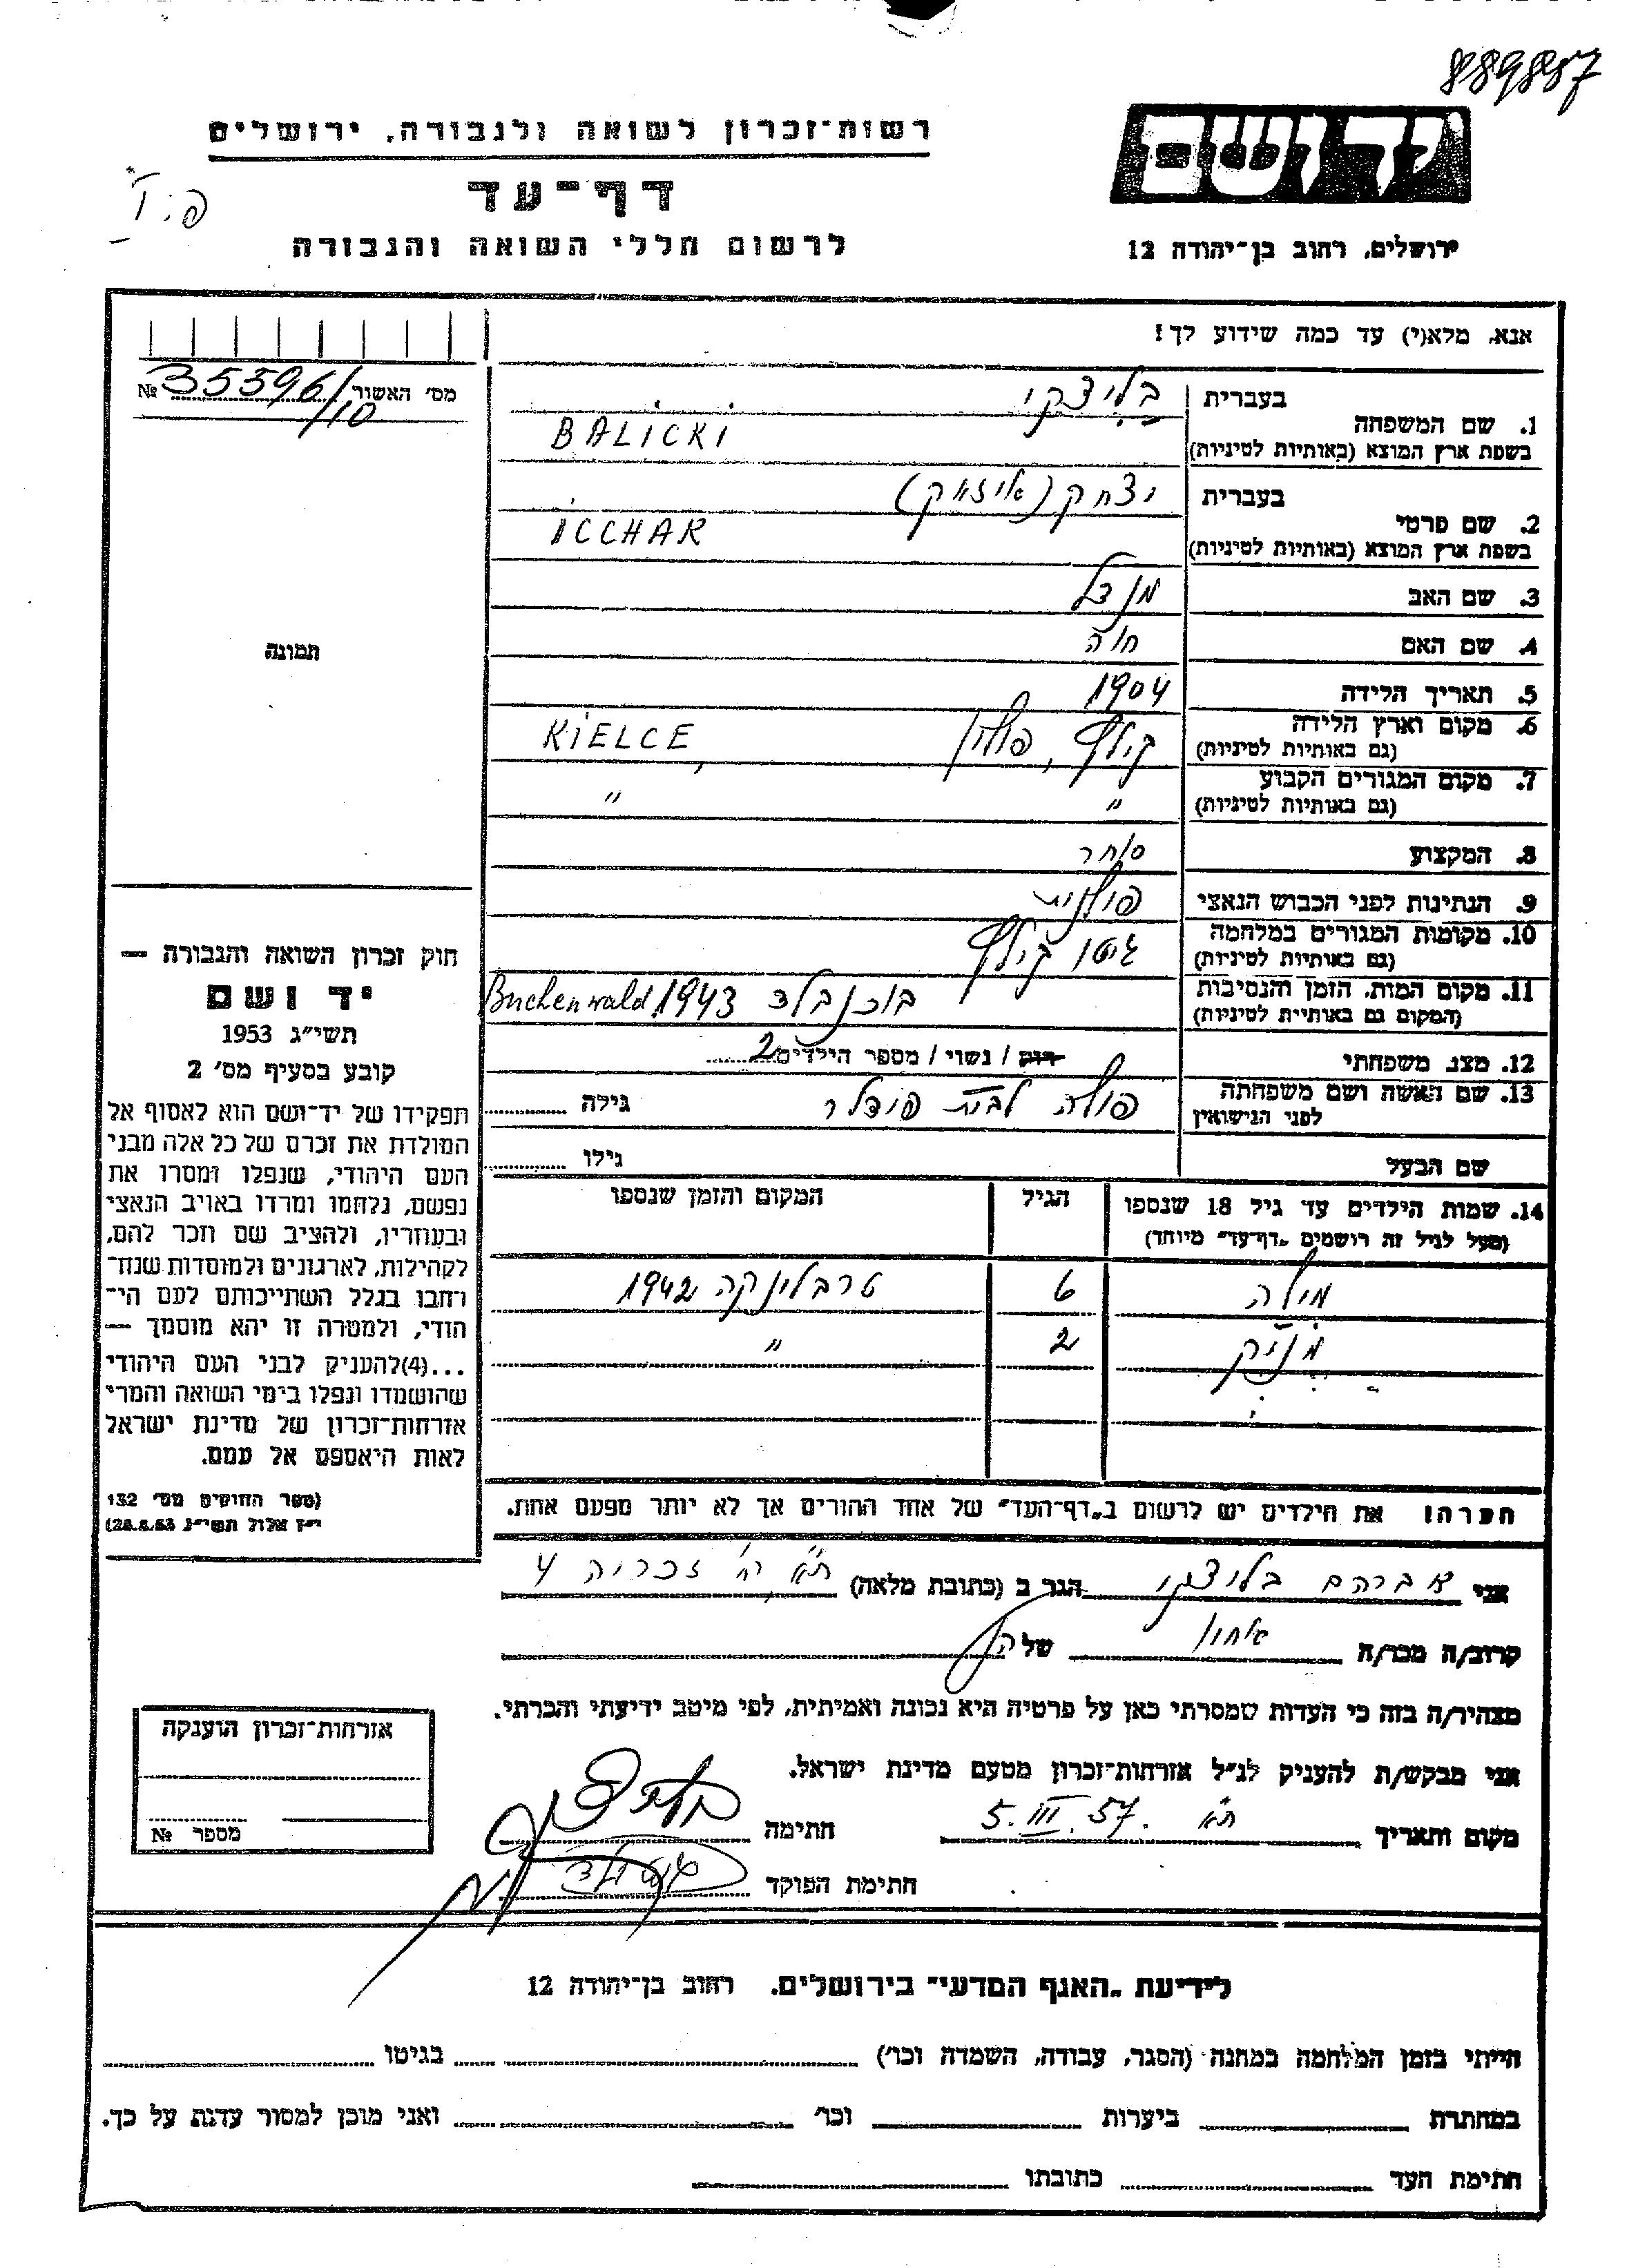 889887
יד ושם
רשות־זכרון לשואה ולגבורה, ירושלים
דף־עד
לרשום חללי השואה והגבורה
ירושלים, רחוב בן־יהודה 12
אנא, מלא(י) עד כמה שידוע לך!
מס׳ האשור 35596/10 №
תמונה
בעברית בליצקי
1. שם המשפחה
בשפת ארץ המוצא (באותיות לטיניות) BALICKI
בעברית יצחק (אייזאק)
2. שם פרטי
בשפת ארץ המוצא (באותיות לטיניות) ICCHAK
3. שם האב מנדל
4. שם האם חוה
5. תאריך הלידה 1904
6. מקום וארץ הלידה קילץ, פולין KIELCE,
(גם באותיות לטיניות)
7. מקום המגורים הקבוע " "
(גם באותיות לטיניות)
8. המקצוע סוחר
9. הנתינות לפני הכבוש הנאצי פולנית
10. מקומות המגורים במלחמה גיטו קילץ
(גם באותיות לטיניות)
11. מקום המות, הזמן והנסיבות בוכנבלד 1943 Buchenwald
(המקום גם באותיות לטיניות)
12. מצב משפחתי רוק / נשוי / מספר הילדים 2
13. שם האשה ושם משפחתה פולה לבית פודלר גילה
לפני הנישואין
שם הבעל גילו
14. שמות הילדים עד גיל 18 שנספו הגיל המקום והזמן שנספו
(מעל לגיל זה רושמים „דף־עד" מיוחד)
מילה 6 טרבלינקה 1942
מניק 2 "
הערה! את הילדים יש לרשום ב„דף־העד" של אחד ההורים אך לא יותר מפעם אחת.
חוק זכרון השואה והגבורה —
יד ושם
תשי״ג 1953
קובע בסעיף מס׳ 2
תפקידו של יד־ושם הוא לאסוף אל
המולדת את זכרם של כל אלה מבני
העם היהודי, שנפלו ומסרו את
נפשם, נלחמו ומרדו באויב הנאצי
ובעוזריו, ולהציב שם וזכר להם,
לקהילות, לארגונים ולמוסדות שנח־
רחבו בגלל השתייכותם לעם הי־
הודי, ולמטרה זו יהא מוסמך —
...(4) להעניק לבני העם היהודי
שהושמדו ונפלו בימי השואה והמרי
אזרחות־זכרון של מדינת ישראל
לאות היאספם אל עמם.
(ספר החוקים מס׳ 132
י״ז אלול תשי״ג 28.8.53)
אני אברהם בליצקי הגר ב (כתובת מלאה) ת״א רח׳ זכריה 4
קרוב/ה מכר/ה אחיו של
מצהיר/ה בזה כי העדות שמסרתי כאן על פרטיה היא נכונה ואמיתית, לפי מיטב ידיעתי והכרתי.
אני מבקש/ת להעניק לנ״ל אזרחות־זכרון מטעם מדינת ישראל.
מקום ותאריך ת״א 5.III.57. חתימה
חתימת הפוקד
אזרחות־זכרון הוענקה
מספר №
לידיעת „האגף המדעי" בירושלים, רחוב בן־יהודה 12
הייתי בזמן המלחמה במחנה (הסגר, עבודה, השמדה וכו׳) בגיטו
במחתרת ביערות וכו׳ ואני מוכן למסור עדות על כך.
חתימת העד כתובתו